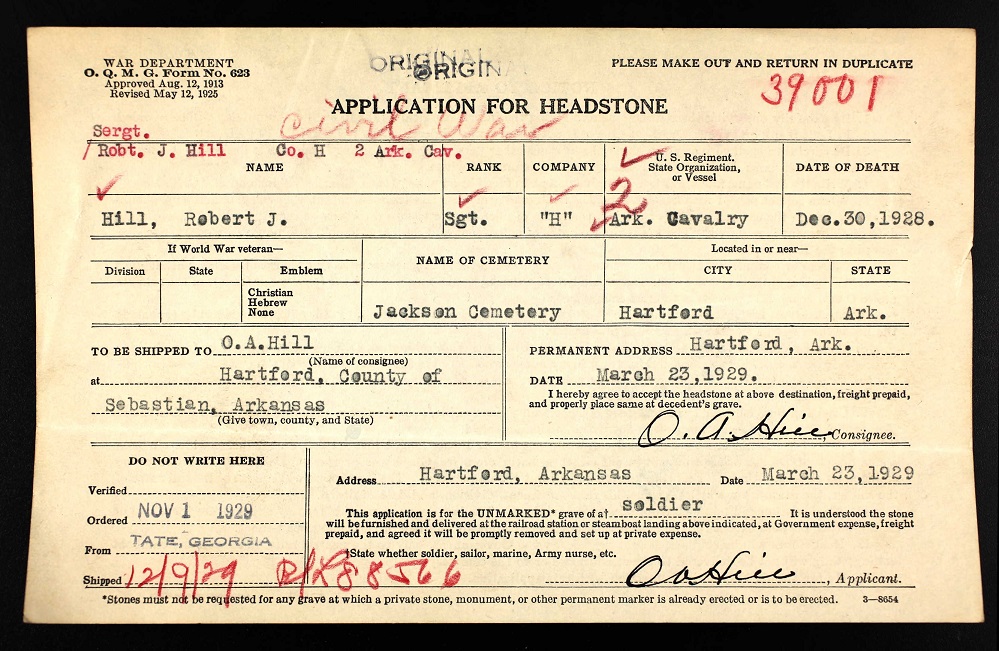 WAR DEPARTMENT
O. Q. M. G. Form No. 623
Approved Aug. 12, 1913
Revised May 12, 1925
ORIGINAL
ORIGINA
PLEASE MAKE OUT AND RETURN IN DUPLICATE
39001
APPLICATION FOR HEADSTONE
Civil War
Sergt.
/ Robt. J. Hill Co. H 2 Ark. Cav.
NAME RANK COMPANY U. S. Regiment, State Organization, or Vessel DATE OF DEATH
2
Hill, Robert J. Sgt. "H" Ark. Cavalry Dec.30,1928.
If World War veteran— NAME OF CEMETERY Located in or near—
Division State Emblem CITY STATE
Christian
Hebrew
None
Jackson Cemetery Hartford Ark.
TO BE SHIPPED TO O.A.Hill
(Name of consignee)
at Hartford, County of
Sebastian, Arkansas
(Give town, county, and State)
PERMANENT ADDRESS Hartford, Ark.
DATE March 23,1929.
I hereby agree to accept the headstone at above destination, freight prepaid,
and properly place same at decedent's grave.
O. A. Hill, Consignee.
DO NOT WRITE HERE
Verified
Ordered NOV 1 1929
From TATE, GEORGIA
Shipped 12/9/29 B/L 88566
Address Hartford, Arkansas Date March 23,1929
This application is for the UNMARKED* grave of a† soldier It is understood the stone
will be furnished and delivered at the railroad station or steamboat landing above indicated, at Government expense, freight
prepaid, and agreed it will be promptly removed and set up at private expense.
†State whether soldier, sailor, marine, Army nurse, etc.
O A Hill, Applicant.
*Stones must not be requested for any grave at which a private stone, monument, or other permanent marker is already erected or is to be erected. 3—8654